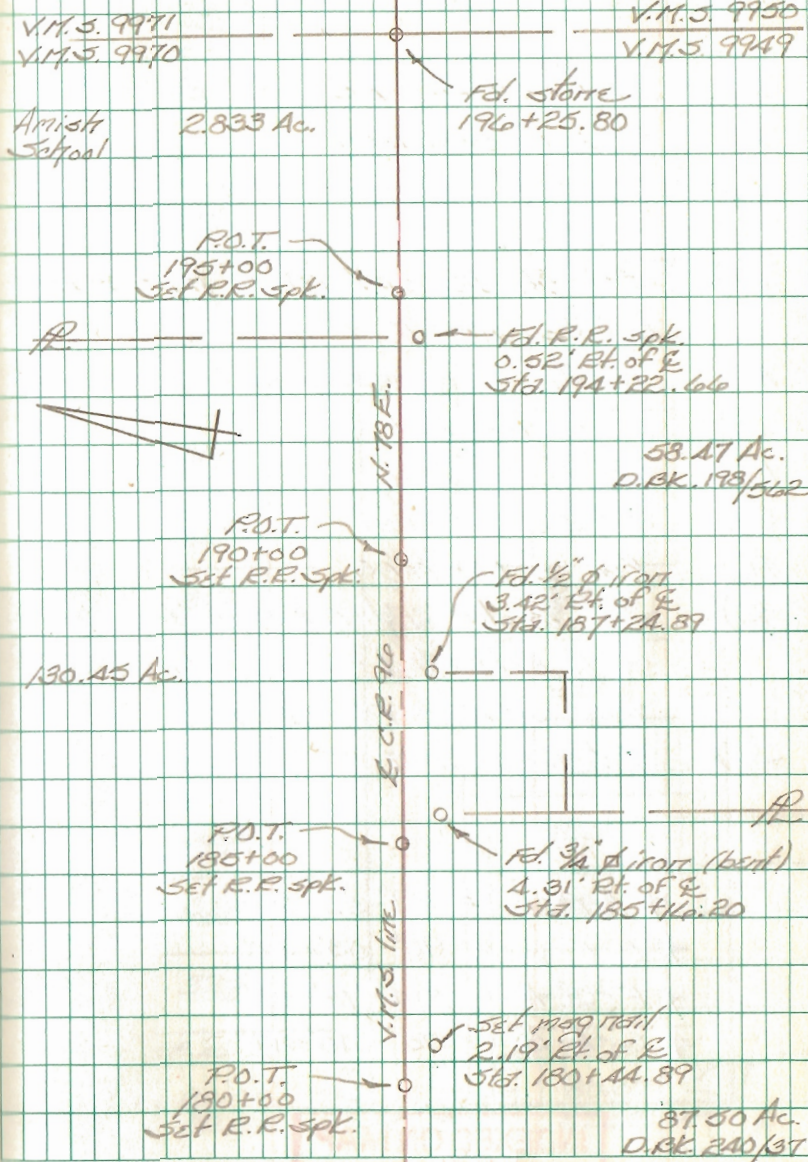 V.M.S. 9971
V.M.S. 9970
V.M.S. 9950
V.M.S. 9949
Fd. stone
196+25.80
Amish
School
2.833 Ac.
P.O.T.
195+00
Set R.R. spk.
PL
Fd. R.R. spk.
0.52' Rt. of ℄
Sta. 194+22.66
N. 78 E.
58.47 Ac.
D.BK. 198/562
P.O.T.
190+00
Set R.R. Spk.
Fd. 1/2" ϕ iron
3.42' Rt. of ℄
Sta. 187+24.89
130.45 Ac.
℄ C.R. 96
PL
P.O.T.
185+00
Set R.R. spk.
Fd. 3/4" ϕ iron (bent)
4.31' Rt. of ℄
Sta. 185+16.20
V.M.S. line
Set mag nail
2.19' Rt. of ℄
Sta. 180+44.89
P.O.T.
180+00
Set R.R. Spk.
87.50 Ac.
D.BK. 240/37